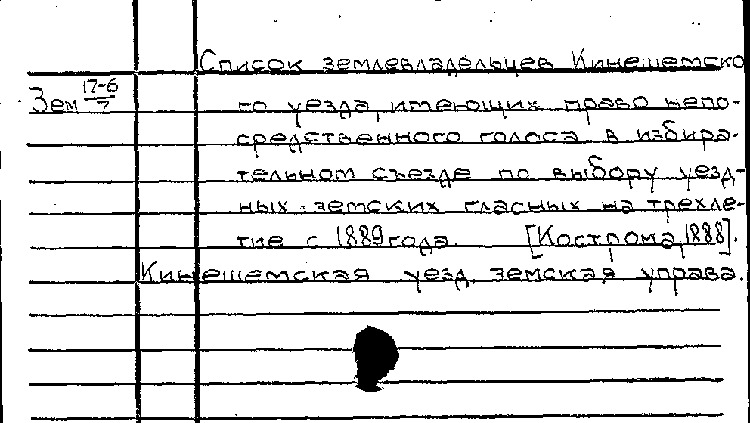 Список землевладельцев Кинешемско
Зем 17-6/7 го уезда, имеющих право непо-
средственного голоса в избира-
тельном съезде по выбору уезд-
ных земских гласных на трехле-
тие с 1889 года. [Кострома, 1888].
Кинешемская уезд. земская управа.